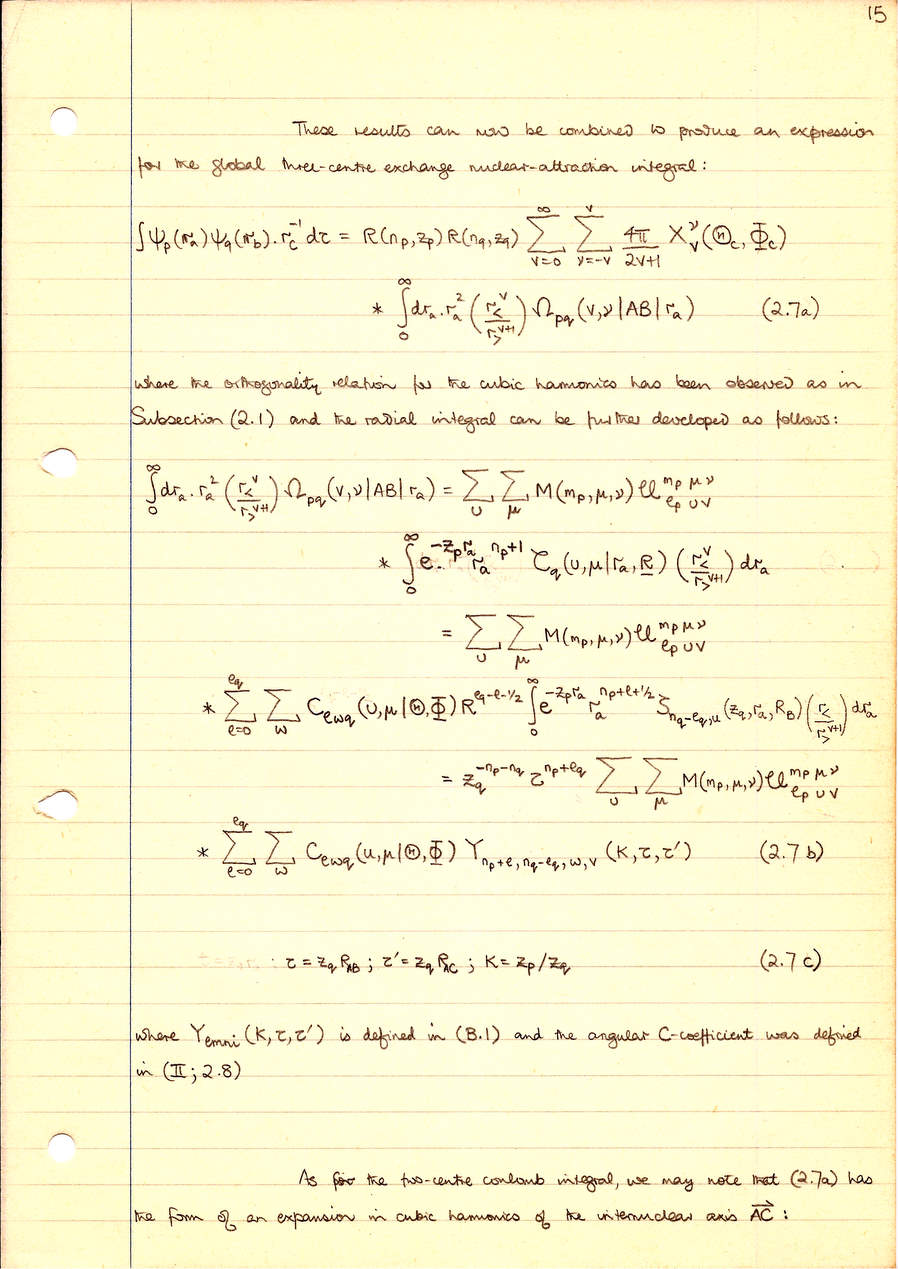 15
These results can now be combined to produce an expression
for the global three-centre exchange nuclear-attraction integral:
∫ψ_p(r_a)ψ_q(r_b).r_c^{-1}dτ = R(n_p,z_p)R(n_q,z_q) ∑_{v=0}^{∞} ∑_{ν=-v}^{v} 4π/(2v+1) X_v^ν(Θ_c,Φ_c)
* ∫_0^∞ dr_a.r_a^2 (r_<^v/r_>^{v+1}) Ω_pq(v,ν|AB|r_a) (2.7a)
where the orthogonality relation for the cubic harmonics has been observed as in
Subsection (2.1) and the radial integral can be further developed as follows:
∫_0^∞ dr_a.r_a^2 (r_<^v/r_>^{v+1}) Ω_pq(v,ν|AB|r_a) = ∑_u ∑_μ M(m_p,μ,ν) U^{m_p μ ν}_{e_p u v}
* ∫_0^∞ e^{-z_p r_a} r_a^{n_p+1} τ_q(u,μ|r_a,R) (r_<^v/r_>^{v+1}) dr_a
= ∑_u ∑_μ M(m_p,μ,ν) U^{m_p μ ν}_{e_p u v}
* ∑_{e=0}^{e_q} ∑_w C_{ewq}(u,μ|Θ,Φ) R^{e_q-e-1/2} ∫_0^∞ e^{-z_p r_a} r_a^{n_p+e+1/2} ζ_{n_q-e_q,u}(z_q,r_a,R_B) (r_</r_>^{v+1}) dr_a
= z_q^{-n_p-n_q} τ^{n_p+e_q} ∑_u ∑_μ M(m_p,μ,ν) U^{m_p μ ν}_{e_p u v}
* ∑_{e=0}^{e_q} ∑_w C_{ewq}(u,μ|Θ,Φ) Y_{n_p+e,n_q-e_q,w,v}(K,τ,τ') (2.7b)
: τ = z_q R_AB ; τ' = z_q R_AC ; K = z_p/z_q (2.7c)
where Y_{emni}(K,τ,τ') is defined in (B.1) and the angular C-coefficient was defined
in (II; 2.8)
As for the two-centre coulomb integral, we may note that (2.7a) has
the form of an expansion in cubic harmonics of the internuclear axis AC⃗ :